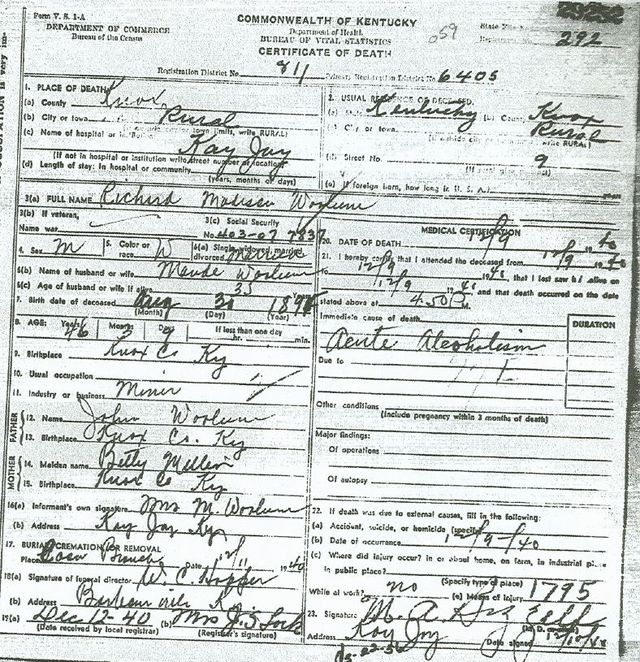 Form V. S. 1-A
DEPARTMENT OF COMMERCE
Bureau of the Census
COMMONWEALTH OF KENTUCKY
Department of Health
BUREAU OF VITAL STATISTICS
CERTIFICATE OF DEATH
059
State File No.
23252
Registrar's No. 292
Registration District No. 811
Primary Registration District No. 6405
1. PLACE OF DEATH
(a) County Knox
(b) City or town Rural
(If outside city or town limits, write RURAL)
(c) Name of hospital or Kay Jay
(If not in hospital or institution write street number or location)
(d) Length of stay: In hospital or community
(years, months or days)
2. USUAL RESIDENCE OF DECEASED.
(a) State Kentucky (b) County Knox
(c) City or town Rural
(If outside city or town limits, write RURAL)
(d) Street No. 9
(e) If foreign born, how long in U. S. A.? years
3(a) FULL NAME Richard Madison Woolum
3(b) If veteran,
Name war
3(c) Social Security
No. 403-07 7837
4. Sex M
5. Color or race W
6(a) Single, widowed, married, divorced Married
6(b) Name of husband or wife Maude Woolum
6(c) Age of husband or wife if alive 35
7. Birth date of deceased Aug 30
(Month) (Day) (Year)
8. AGE: Years 46 Months 3 Days 9 If less than one day
hr. min.
9. Birthplace Knox Co Ky
10. Usual occupation
11. Industry or business Miner
FATHER
12. Name John Woolum
13. Birthplace Knox Co. Ky
MOTHER
14. Maiden name Betty
15. Birthplace Knox Co Ky
16(a) Informant's own signature Mrs M. Woolum
(b) Address Kay Jay Ky
17. BURIAL CREMATION OR REMOVAL
Place Branch 12/11 1940
18(a) Signature of funeral director W. C. Hopper
(b) Address Barbourville K
19(a) Dec 12-40 (b) Mrs J. S. Lock
(Date received by local registrar) (Registrar's signature)
MEDICAL CERTIFICATION
20. DATE OF DEATH 12/9 40
21. I hereby certify that I attended the deceased from 12/9 1940
to 12/9 19 40, that I last saw him alive on
12/9 19 40 and that death occurred on the date
stated above at 4:50 P M.
DURATION
Immediate cause of death
Acute Alcoholism
Due to
Other conditions
(Include pregnancy within 3 months of death)
Major findings:
Of operations
Of autopsy
22. If death was due to external causes, fill in the following:
(a) Accident, suicide, or homicide (specify)
(b) Date of occurrence 12/9/40
(c) Where did injury occur? in or about home, on farm, in industrial place
in public place?
(Specify type of place)
While at work? no (e) Means of injury 1795
23. Signature M. A.
(M. D.
Address Kay Jay Date signed